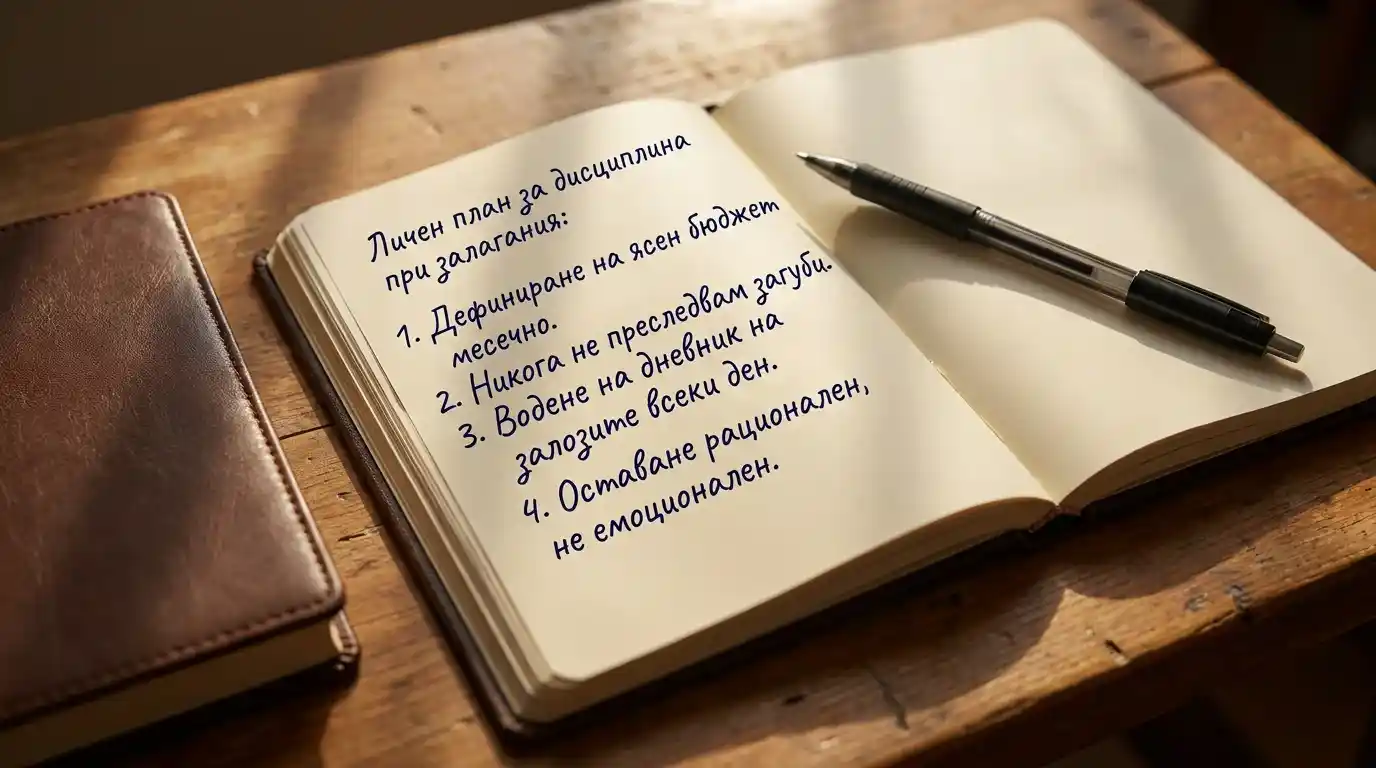 Личен план за дисциплина
при залагания:
1. Дефиниране на ясен бюджет
месечно.
2. Никога не преследвам загуби.
3. Водене на дневник на
залозите всеки ден.
4. Оставане рационален,
не емоционален.